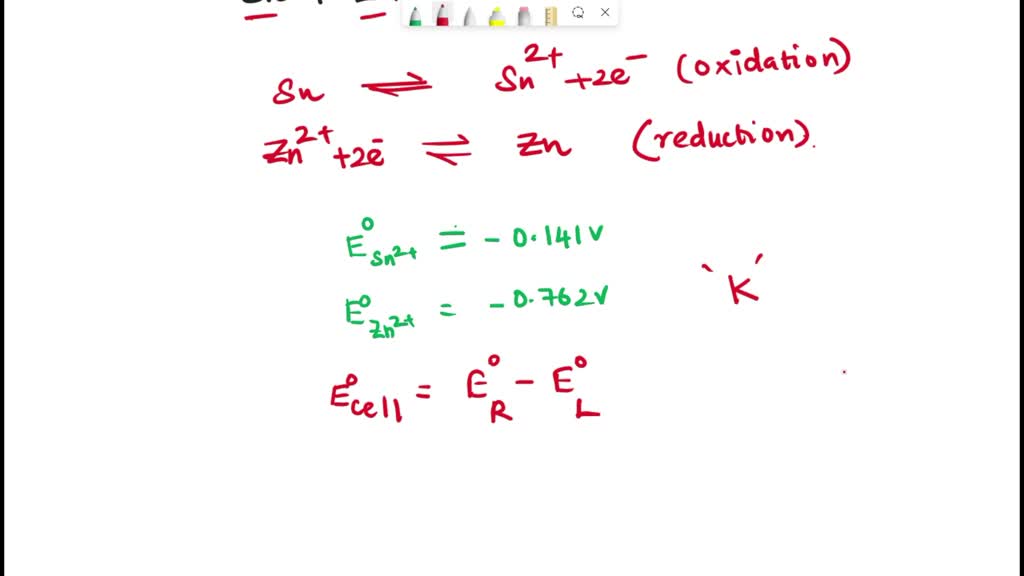 Sn ⇌ Sn²⁺ + 2e⁻ (oxidation)
Zn²⁺ + 2e⁻ ⇌ Zn (reduction).
E⁰Sn²⁺ = - 0.141V
E⁰Zn²⁺ = - 0.762V
'K'
E⁰cell = E⁰R - E⁰L